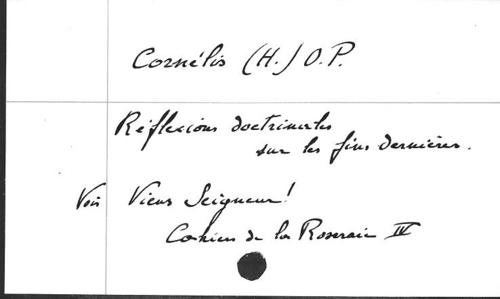 Cornélis (H.) O.P.
Réflexions doctrinales
sur les fins dernières.
Voir Viens Seigneur!
Cahiers de la Roseraie IV